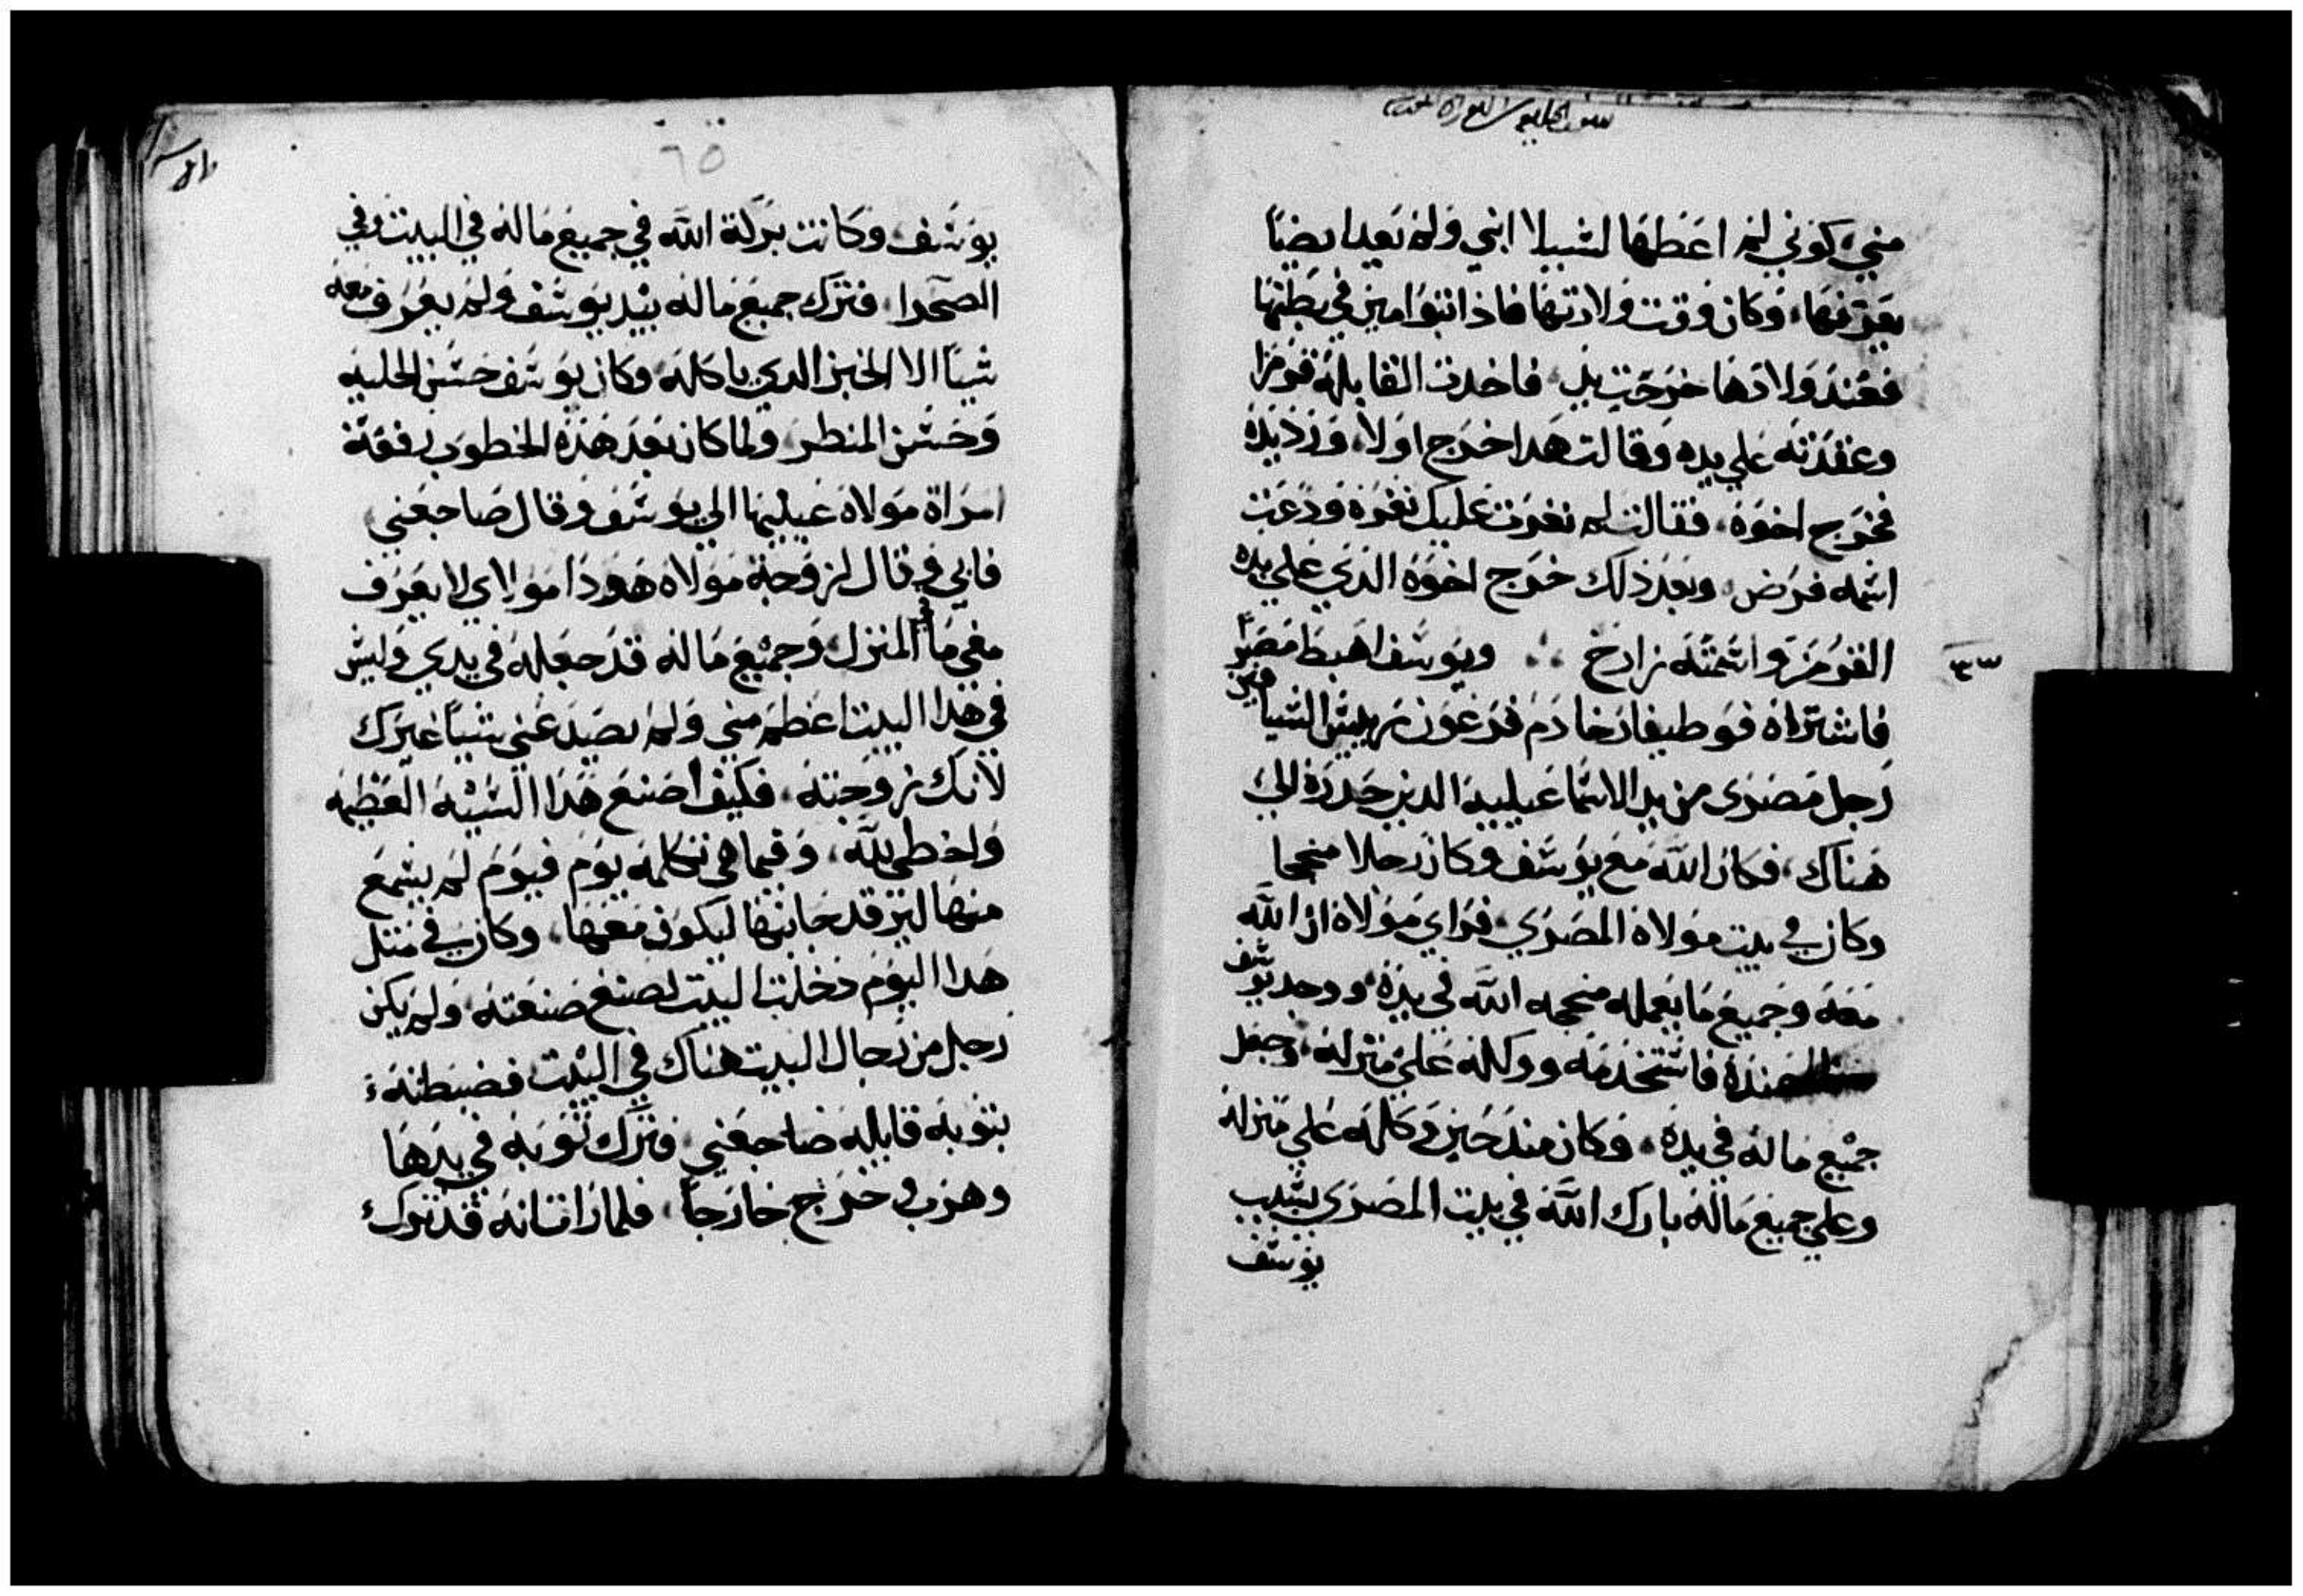 مني كوني لم اعطها لشيلا ابني ولم يعد ايضاً
يعرفها، وكان وقت ولادتها فاذا تتوامين في بطنها
فعند ولادها خرجت يد فاخدت القابله قرمزا
وعقدته علي يده وقالت هدا خرج اولا، ورد يده
فخرج اخوه، فقالت لم تغرت عليك تغره ودعت
اسمه فرض، وبعد ذلك خرج اخوه الذي علي يده
القرمز واسمته زارخ ∴ ويوسف اهبط مصر
فاشتراه فوطيفار خادم فرعون ريس السيافين
رجل مصرى من يد الاسماعيليه الدين حدروه الي
هناك، فكان الله مع يوسف وكان رجلا منجحا
وكان في بيت مولاه المصري، فراي مولاه ان الله
معه وجميع ما يعمله منجحه الله في يده ووجد يوسف
عنده فاستخدمه ووكله علي منزله، وجعل
جميع ماله في يده، وكان مند حين وكله علي منزله
وعلي جميع ماله بارك الله في بيت المصري بسبب
يوسف
٦٥
يوسف، وكانت بركة الله في جميع ماله في البيت وفي
الصحرا، فترك جميع ماله بيد يوسف ولم يعرف معه
شياً الا الخبز الدي ياكله، وكان يوسف حسن الحليه
وحسن المنظر، ولما كان بعد هذه الخطوب رفعت
امراة مولاه عينيها الي يوسف وقال ضاجعني
فابي وقال لزوجة مولاه هودا مولاي لا يعرف
معي ما في المنزل، وجميع ماله قد جعله في يدي وليس
في هدا البيت اعظم مني ولم يصد عني شياً غيرك
لانك زوجته، فكيف اصنع هذا السيه العظيمه
واخطي لله، وفيما هي تكلمه يوم فيوم لم يسمع
منها لينرقد جانبها ليكون معها، وكان في مثل
هدا اليوم دخلت البيت لصنع صنعته ولم يكن
رجل من رجال البيت هناك في البيت فضبطته
بثوبه قايله ضاجعني، فترك ثوبه في يدها
وهرب وخرج خارجاً، فلما رات انه قد ترك